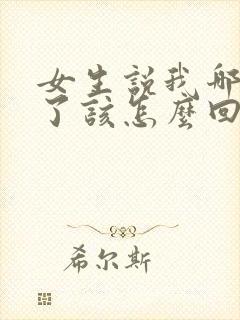 女生説我
了該怎麼回
希尔斯